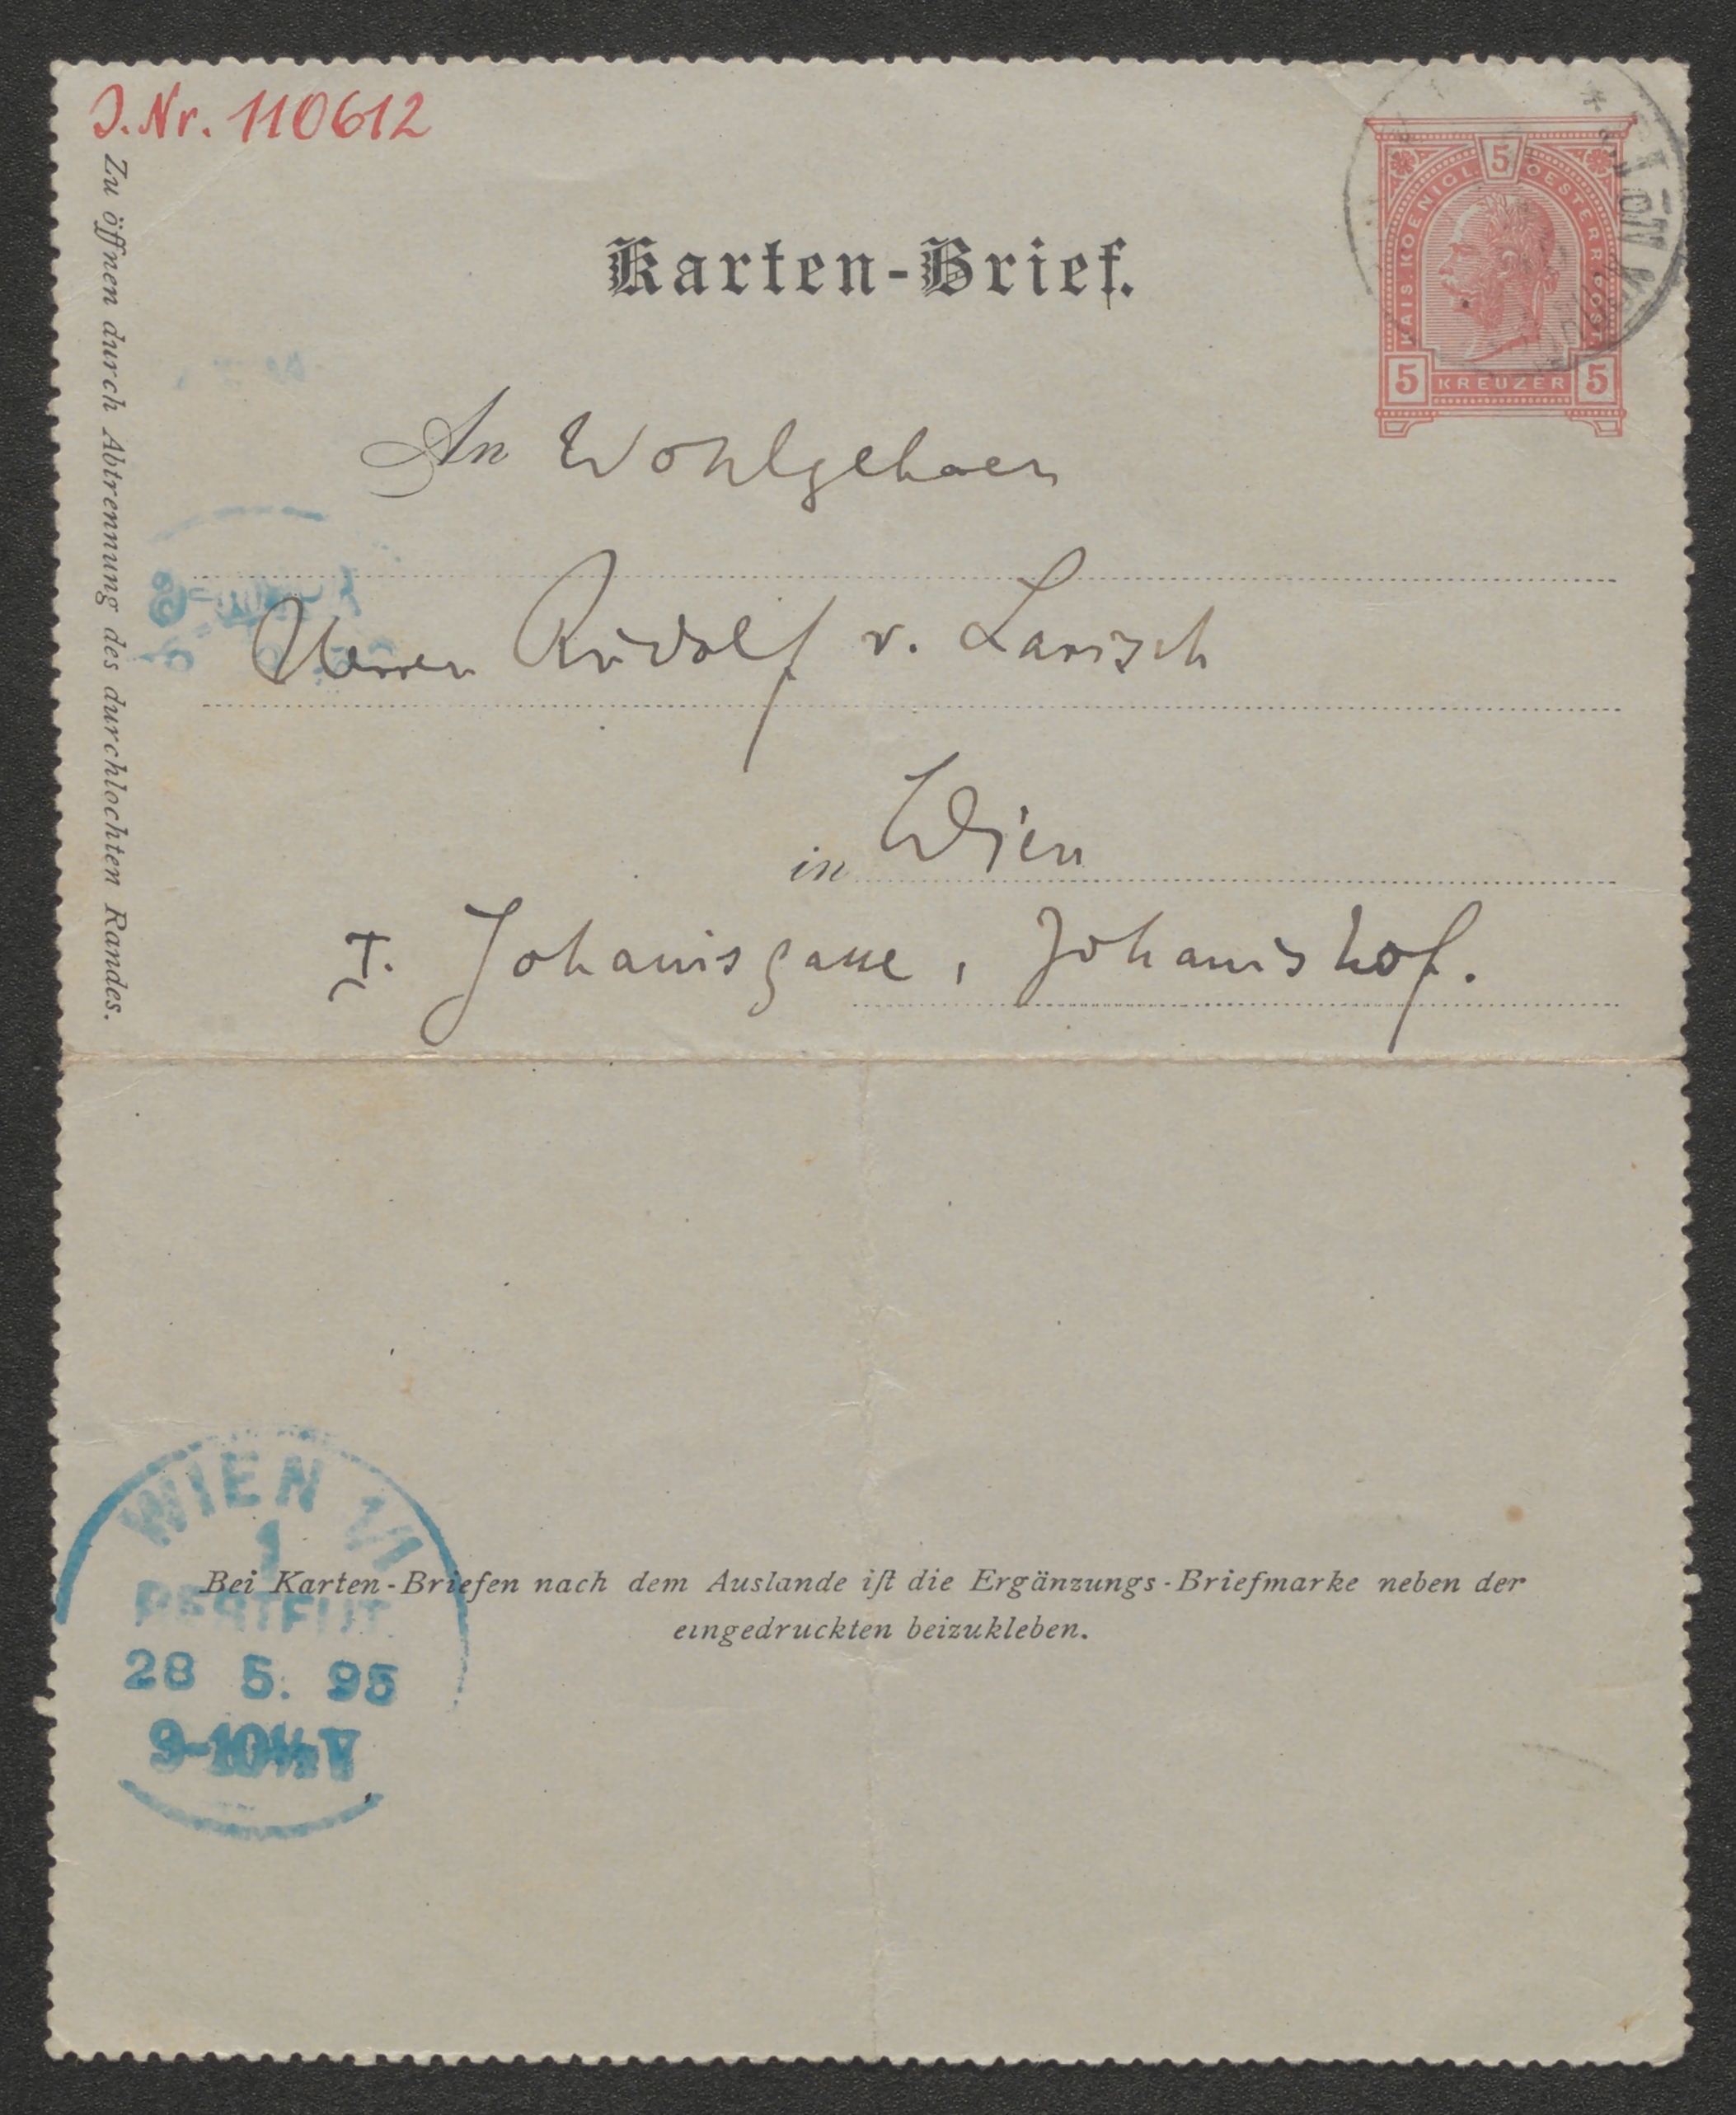 J. Nr. 110612
Zu öffnen durch Abtrennung des durchlochten Randes.
Karten-Brief.
5
KAIS. KOENIGL. OESTERR. POST
5 KREUZER 5
An Wohlgeboren
Herrn Rudolf v. Larisch
in Wien
I. Johannisgasse, Johannishof.
WIEN VI
1
28 5. 95
9-10½ V
Bei Karten-Briefen nach dem Auslande iſt die Ergänzungs-Briefmarke neben der
eingedruckten beizukleben.